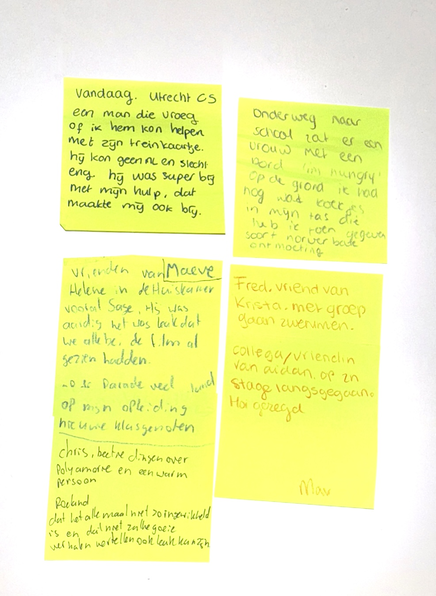 vandaag. Utrecht CS
een man die vroeg
of ik hem kon helpen
met zijn treinkaartje.
hij kon geen NL en slecht
eng. hij was super blij
met mijn hulp, dat
maakte mij ook blij.
onderweg naar
school zat er een
vrouw met een
bord 'im hungry'
op de grond ik had
nog wat koekjes
in mijn tas die
heb ik toen gegeven
soort norverbale
ontmoeting
vrienden van Maeve
Helene in de Huiskamer
vooral Hij was
aardig het was leuk dat
we allebei de film al
gezien hadden.
Parade veel
op mijn opleiding
nieuwe klasgenoten
Chris, beetje dingen over
Polyamorie en een warm
persoon
Roeland
dat het allemaal niet zo ingewikkeld
is en dat niet
verhalen vertellen ook leuk kan zijn
Fred, vriend van
Krista, met groep
gaan zwemmen.
collega/vriendin
van aidan. op zn
stage langsgegaan.
Hoi gezegd